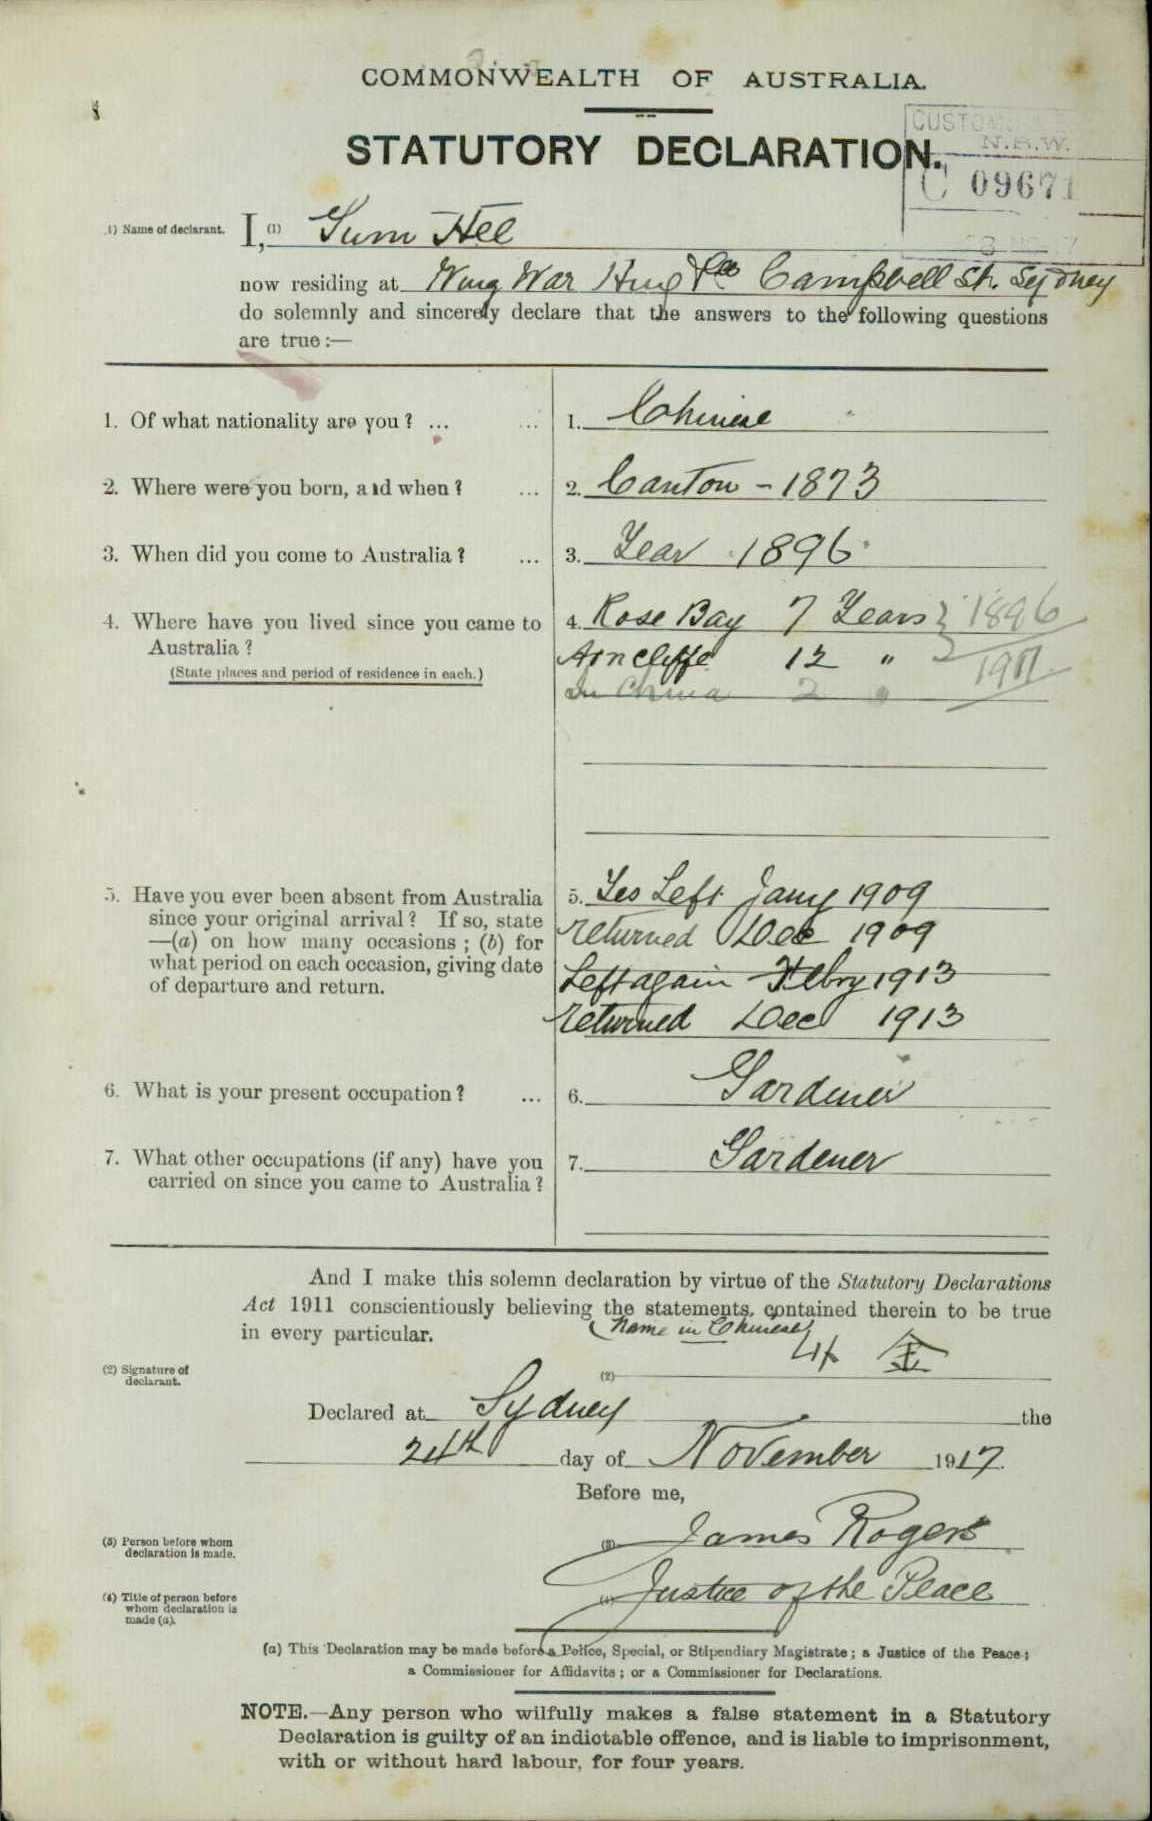 COMMONWEALTH OF AUSTRALIA.
STATUTORY DECLARATION.
CUSTOMS
N.S.W.
C 09671
(1) Name of declarant. I, (1) Sum Hee
now residing at Wing War Hing & Co Campbell St. Sydney
do solemnly and sincerely declare that the answers to the following questions
are true:—
1. Of what nationality are you? ... ... 1. Chinese
2. Where were you born, and when? ... 2. Canton - 1873
3. When did you come to Australia? ... 3. Year 1896
4. Where have you lived since you came to 4. Rose Bay 7 Years } 1896
Australia? Arncliffe 12 " 1917
(State places and period of residence in each.) In China 2 "
5. Have you ever been absent from Australia 5. Yes Left Jany 1909
since your original arrival? If so, state returned Dec 1909
—(a) on how many occasions; (b) for
what period on each occasion, giving date Left again Febry 1913
of departure and return. returned Dec 1913
6. What is your present occupation? ... 6. Gardener
7. What other occupations (if any) have you 7. Gardener
carried on since you came to Australia?
And I make this solemn declaration by virtue of the Statutory Declarations
Act 1911 conscientiously believing the statements contained therein to be true
in every particular. (Name in Chinese)
(2) Signature of
declarant. (2) 金
Declared at Sydney the
24th day of November 1917.
Before me,
(3) Person before whom
declaration is made. (3) James Rogers
(4) Title of person before
whom declaration is
made (a). (4) Justice of the Peace
(a) This Declaration may be made before a Police, Special, or Stipendiary Magistrate; a Justice of the Peace;
a Commissioner for Affidavits; or a Commissioner for Declarations.
NOTE.—Any person who wilfully makes a false statement in a Statutory
Declaration is guilty of an indictable offence, and is liable to imprisonment,
with or without hard labour, for four years.